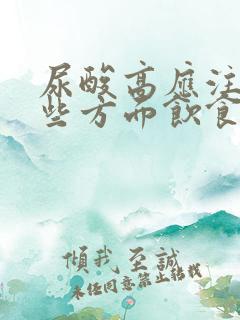 尿酸高應注
些方面飲食
傾我至誠
未任同意禁止轉載